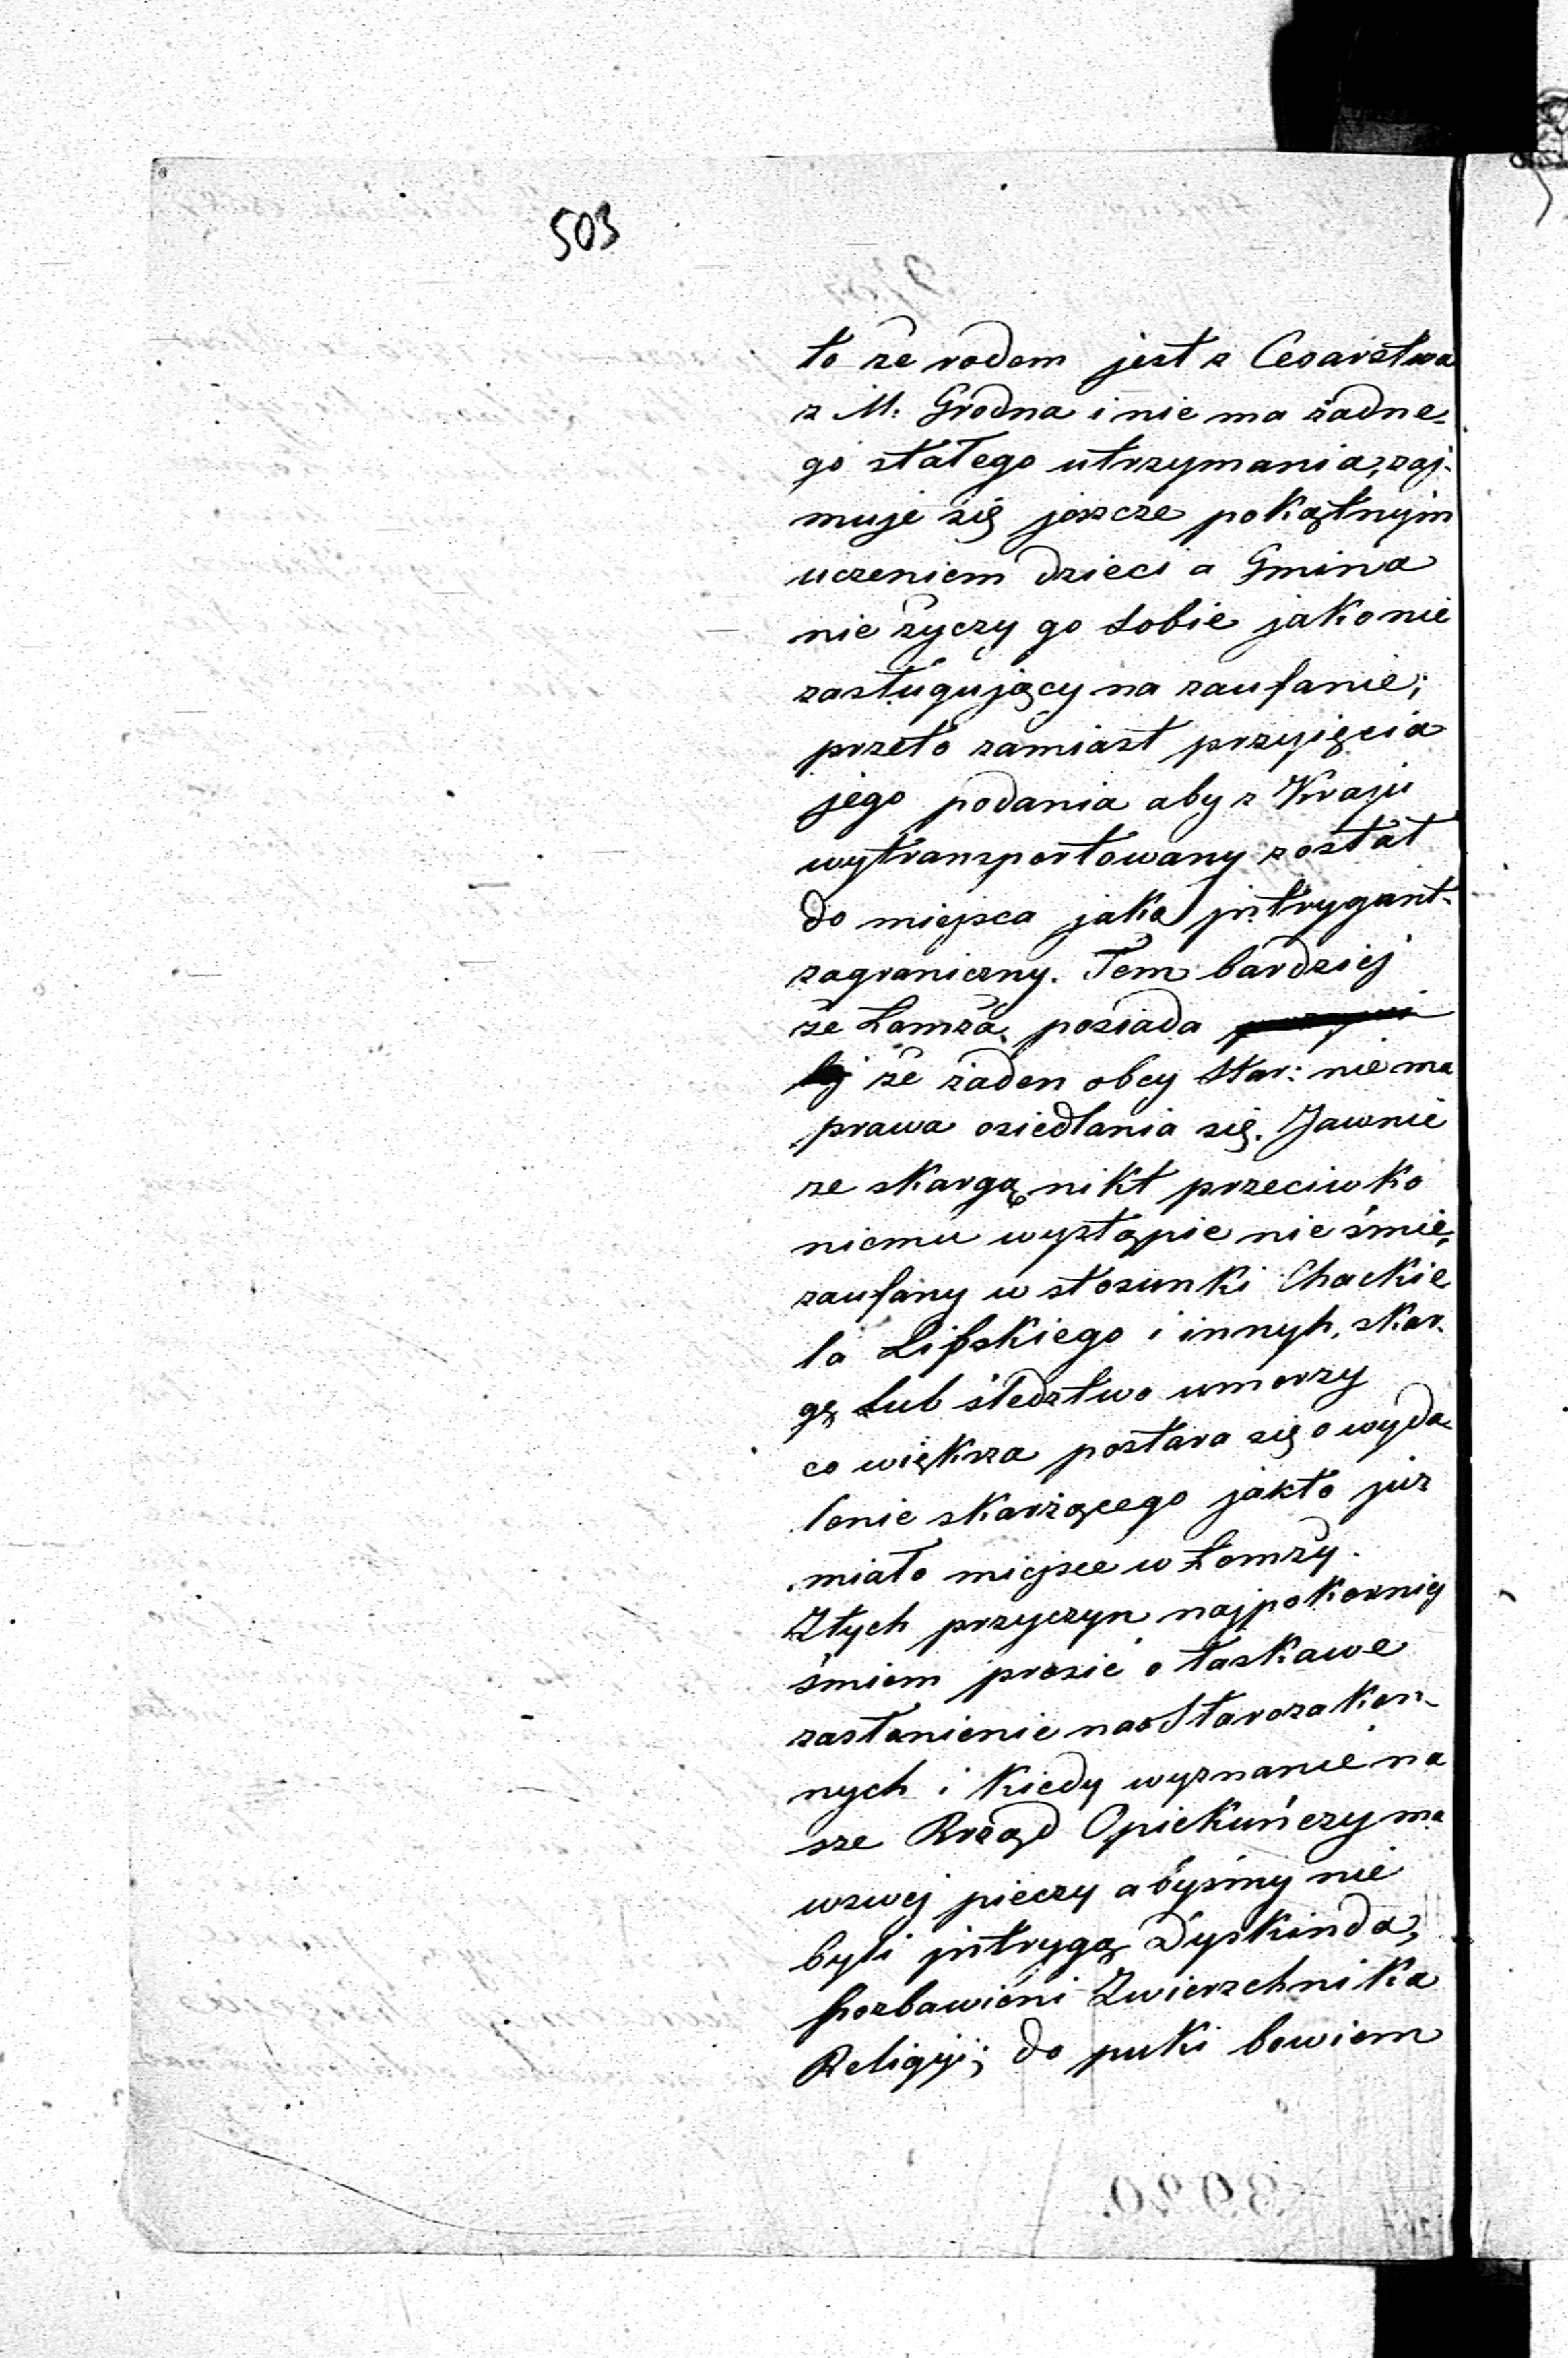 503
to że rodem jest z Cesarstwa
z M: Grodna i nie ma żadne-
go stałego utrzymania, zaj-
muje się jeszcze pokątnym
uczeniem dzieci a Gmina
nie życzy go sobie jako nie
zasługujący na zaufanie;
przeto zamiast przyięcia
jego podania aby z Kraju
wytransportowany został
do miejsca jako jntrygant
zagraniczny. Tem bardziej
że Łomża posiada
że żaden obcy Star: nie ma
prawa osiedlania się. Jawnie
ze skargą nikt przeciwko
niemu wystąpić nie śmie,
zaufany w stosunki Chackie
la Lipskiego i innyh, skar-
gę lub śledztwo umorzy
co większa postara się o wyda-
lenie skarżącego jakto już
miało miejsce w Łomży.
Ztych przyczyn najpokorniej
śmiem prosić o łaskawe
zasłonienie nas Starozakon-
nych i kiedy wyznanie na
sze Rząd Opiekuńczy ma
wswej pieczy abyśmy nie
byli jntrygą Dyskinda,
pozbawieni Zwierzchnika
Religyi; do puki bowiem
3020